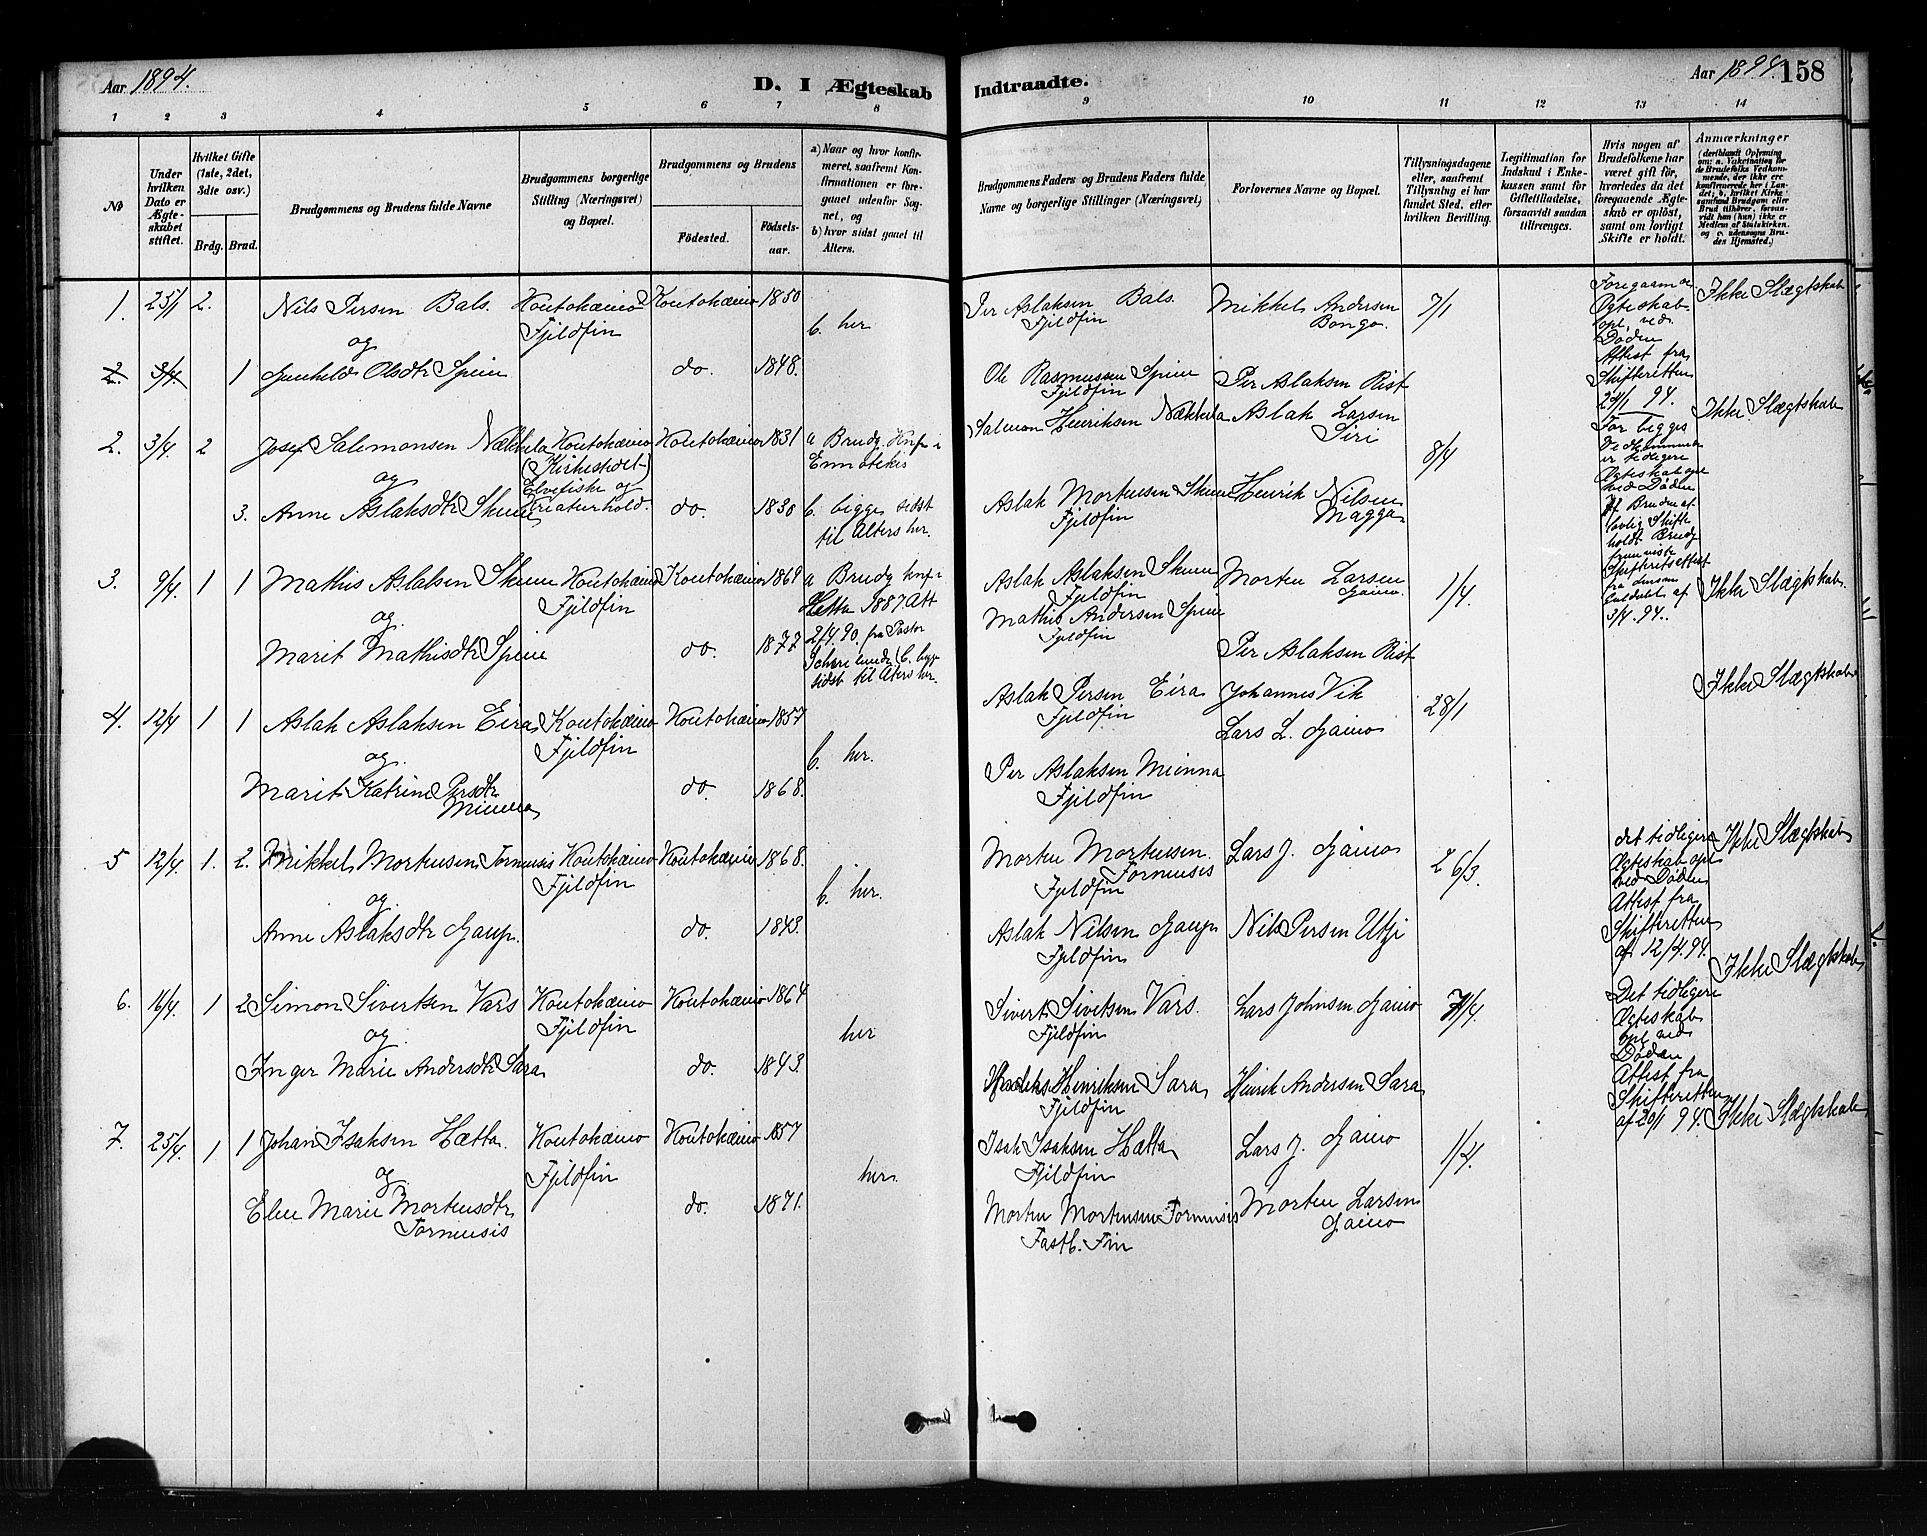 Aar 1894.
D. I Ægteskab
Indtraadte.
Aar 1894.
158
1 2 3 4 5 6 7 8 9 10 11 12 13 14
No
Under hvilken Dato er Ægteskabet stiftet.
Hvilket Gifte (1ste, 2det, 3die osv.)
Brdg.
Brud.
Brudgommens og Brudens fulde Navne
Brudgommens borgerlige Stilling (Næringsvei) og Bopæl.
Brudgommens og Brudens
Födested.
Födselsaar.
a) Naar og hvor konfirmeret, saafremt Konfirmationen er foregaaet udenfor Sognet, og
b) hvor sidst gaaet til Alters.
Brudgommens Faders og Brudens Faders fulde Navne og borgerlige Stillinger (Næringsvei)
Forlovernes Navne og Bopæl.
Tillysningsdagene eller, saafremt Tillysning ei har fundet Sted, efter hvilken Bevilling.
Legitimation for Indskud i Enkekassen samt for Giftetilladelse, forsaavidt saadan tiltrænges.
Hvis nogen af Brudefolkene har været gift før, hvorledes da det foregaaende Ægteskab er oplöst, samt om lovligt Skifte er holdt.
Anmærkninger (deriblandt Oplysning om: a. Vakcination for de Brudefolks Vedkommende, der ikke ere konfirmerede her i Landet; b. hvilket Kirkesamfund Brudgom eller Brud tilhörer, forsaavidt han (hun) ikke er Medlem af Statskirken, og c. udensogns Brudes Hjemsted.)
1. 25/1 2. Nils Persen Bals. Koutokæino Koutokæino 1850
Fjeldfin
b. her
og
2. 3/4. 1 Gunhild Olsdtr Spein do. 1848.
Per Aslaksen Bals Mikkel Andersen 7/1
Fjeldfin Bongo.
Ole Rasmussen Spein Per Aslaksen Rist
Fjeldfin
Foregaaende
Ægteskab
opl. ved
Døden
Attest fra
Skifteretten
94.
Ikke Slægtskab
2. 3/4 2 Josef Salomonsen Nækkela Koutokæino Koutokæino 1831 a Brudg. Knf. i
(Kirkestedet) Enmotekis
og Elvefiske og
3. Anne Aslaksdtr Skum Kreaturhold. do. 1830 b. begge sidst
til Alters her.
Salmon Henriksen Nækkela Aslak Larsen
Siri 8/4
Aslak Mortensen Skum Henrik Nilsen
Fjeldfin Magga
For begges
Vedkommende
er tidligere
Ægteskab opl
ved Døden
Af Bruden af
lovlig Skifte
holdt Brudg
Skifteretsattest
3/4 94.
Ikke Slægtskab
3. 9/4. 1 1 Mathis Aslaksen Skum Koutokæino Koutokæino 1869 a Brudg knf i
Fjeldfin Hetta 1887 Att
og. 2/4 90. fra Pastor
Marit Mathisdtr Spein do. 1872 b. begge
sidst til Alters her.
Aslak Aslaksen Skum Morten Larsen
Fjeldfin Gaino. 1/4.
Mathis Andersen Spein
Fjeldfin Per Aslaksen Rist
Ikke Slægtskab
4. 12/4 1 1 Aslak Aslaksen Eira Koutokæino Koutokæino 1857
Fjeldfin
og. b. her.
Marit Katrine Persdtr do. 1868.
Mienna
Aslak Persen Eira Johannes Vik 28/1
Fjeldfin Lars L. Gaino
Per Aslaksen Mienna
Fjeldfin
Ikke Slægtskab
5 12/4 1. 2. Mikkel Mortensen Tornensis Koutokæino Koutokæino 1868.
Fjeldfin
og. b. her.
Anne Aslaksdtr Gaup. do. 1843.
Morten Mortensen Lars J. Gaino 26/3.
Fjeldfin Tornensis
Aslak Nilsen Gaup Nils Persen Utsi
Fjeldfin
det tidligere
Ægteskab opl
ved Døden
Attest fra
Skifteretten
af 12/4.94.
Ikke Slægtskab
6. 16/4. 1 2 Simon Sivertsen Vars Koutokæino Koutokæino 1864
Fjeldfin
og. her
Inger Marie Andersdtr Sara do. 1843.
Sivert Sivertsen Vars. Lars Johnsen Gaino 7/4.
Fjeldfin
Henriksen Sara Henrik Andersen Sara
Fjeldfin
Det tidligere
Ægteskab
opl ved
Døden
Attest fra
Skifteretten
af 20/1 94.
Ikke Slægtskab
7. 25/4. 1 1 Johan Isaksen Hætta. Koutokæino Koutokæino 1857
Fjeldfin
og her.
Elen Marie Mortensdtr do. 1871.
Tornensis
Isak Isaksen Hætta Lars J. Gaino 1/4.
Fjeldfin
Morten Mortensen Tornensis Morten Larsen
Fastb. Fin Gaino
Ikke Slægtskab